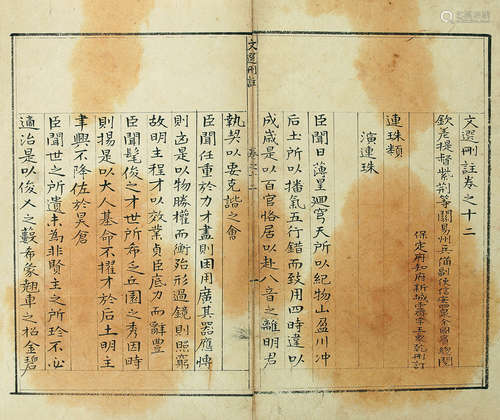 文選刪註卷之十二
欽差提督紫荊等關易州兵備副使信安四泉余國賓總閱
保定府知府新城霽宇王象乾刪訂
連珠類
演連珠
臣聞日薄星廻穹天所以紀物山盈川冲
后土所以播氣五行錯而致用四時違以
成歲是以百官恪居以赴八音之離明君
文選刪註
卷之十二
執契以要克諧之會
臣聞任重於力才盡則困用廣其器應博
則凶是以物勝權而衡殆形過鏡則照窮
故明主程才以效業貞臣底力而辭豐
臣聞髦俊之才世所希乏丘園之秀因時
則揚是以大人基命不擢才於后土明主
聿興不降佐於昊倉
臣聞世之所遺未為非賢主之所珍不必
適治是以俊乂之藪希蒙翹車之招金碧